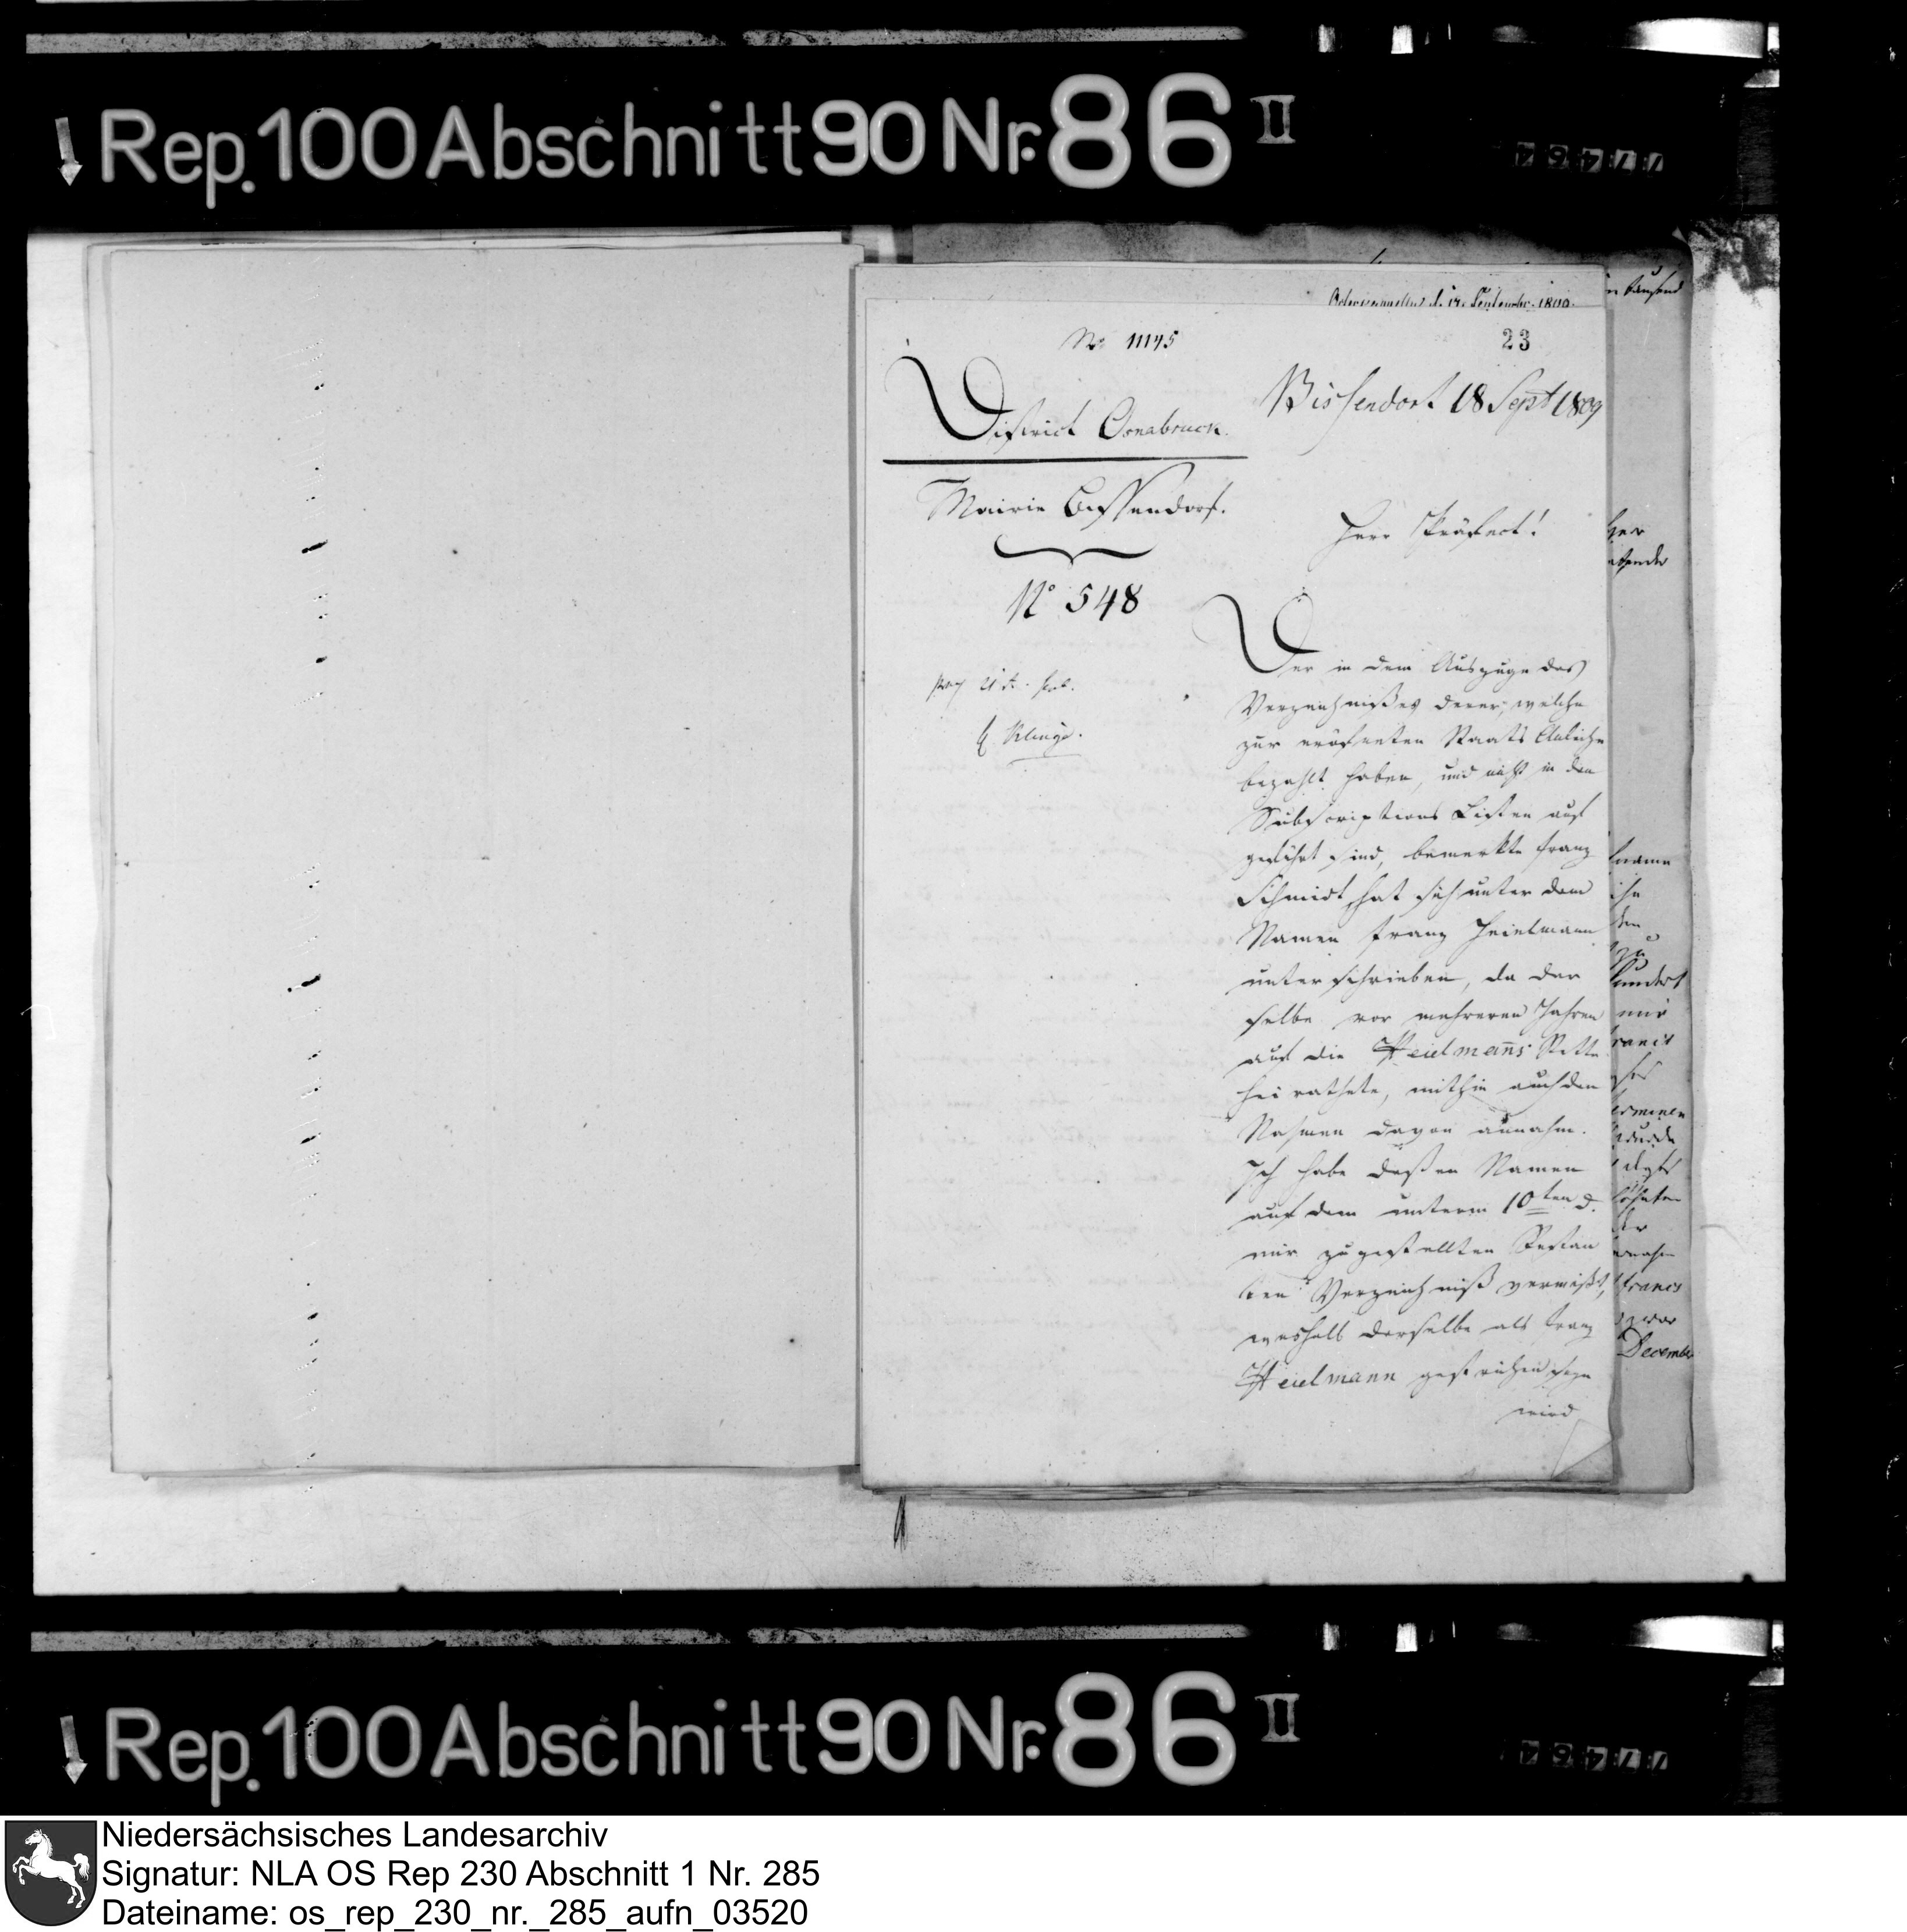 Rep. 100 Abschnitt 90 Nr. 86 II
77464
tausend
Septembr. 1809.
No 11145
23
District Osnabruck.
Bissendorf 18 Sept 1809
Mairie Bissendorf.
Herr Präfect!
No 548
Der in dem Auszuge des
Verzeichnißes derer, welche
zur eröfneten Staats Anleihe
bezahlt haben, und nicht in den
Subscriptions Listen auf
geführt sind, bemerkte Franz
Schmidt, hat sich unter dem
Namen Franz Heielmann
unterschrieben, da der
selbe vor mehreren Jahren
auf die Heielmanns Stette
heirathete, mithin auch den
Nahmen davon annahm.
Ich habe deßen Namen
auf dem unterm 10ten d.
mir zugestellten Restan
ten Verzeichniß vermißt,
weshalb derselbe als Franz
Heielmann gestrichen seyn
wird
December
Rep. 100 Abschnitt 90 Nr. 86 II
77464
Niedersächsisches Landesarchiv
Signatur: NLA OS Rep 230 Abschnitt 1 Nr. 285
Dateiname: os_rep_230_nr._285_aufn_03520